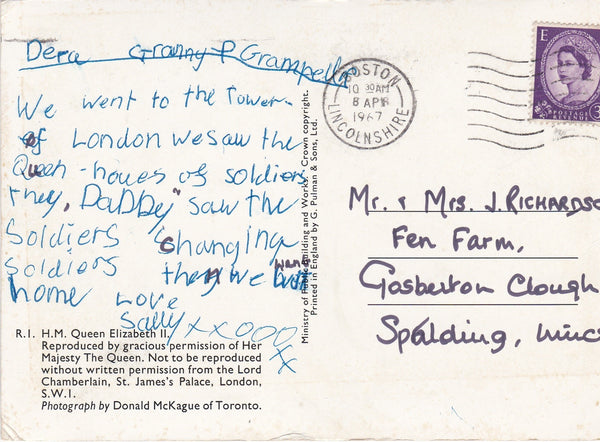 Dera Granny & Grampella
We went to the Tower
of London we saw the
Queen-houes of soldiers
they, DaDDy" saw the
Soldiers Changing
Soldiers then we went
home Love
Sally xx000
xx
R.I. H.M. Queen Elizabeth II.
Reproduced by gracious permission of Her
Majesty The Queen. Not to be reproduced
without written permission from the Lord
Chamberlain, St. James's Palace, London,
S.W.I.
Photograph by Donald McKague of Toronto.
Ministry of Public Building and Works. Crown copyright.
Printed in England by G. Pulman & Sons, Ltd.
BOSTON
10 30 AM
8 APR
1967
LINCOLNSHIRE
E
POSTAGE
3
Mr. & Mrs. J. RICHARDSO
Fen Farm,
Gosberton Clough
Spalding, Linc